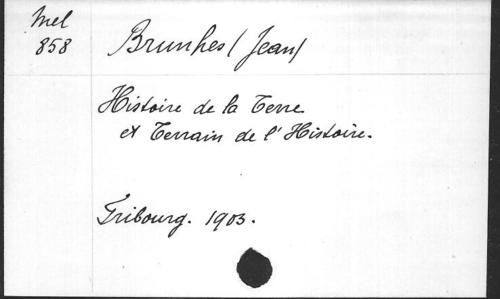 Mel
858
Brunhes (Jean)
Histoire de la Terre
et Terrain de l'Histoire.
Fribourg. 1903.